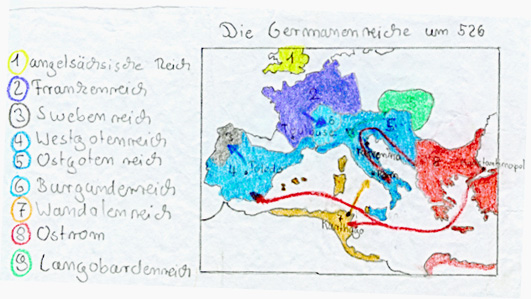 Die Germanenreiche um 526
1 angelsächsische Reich
2 Frankenreich
3 Swebenreich
4 Westgotenreich
5 Ostgotenreich
6 Burgundenreich
7 Wandalenreich
8 Ostrom
9 Langobardenreich
1
2
5
4 Toledo
Ravenna
Rom
8
Konstantinopel
7
Karthago